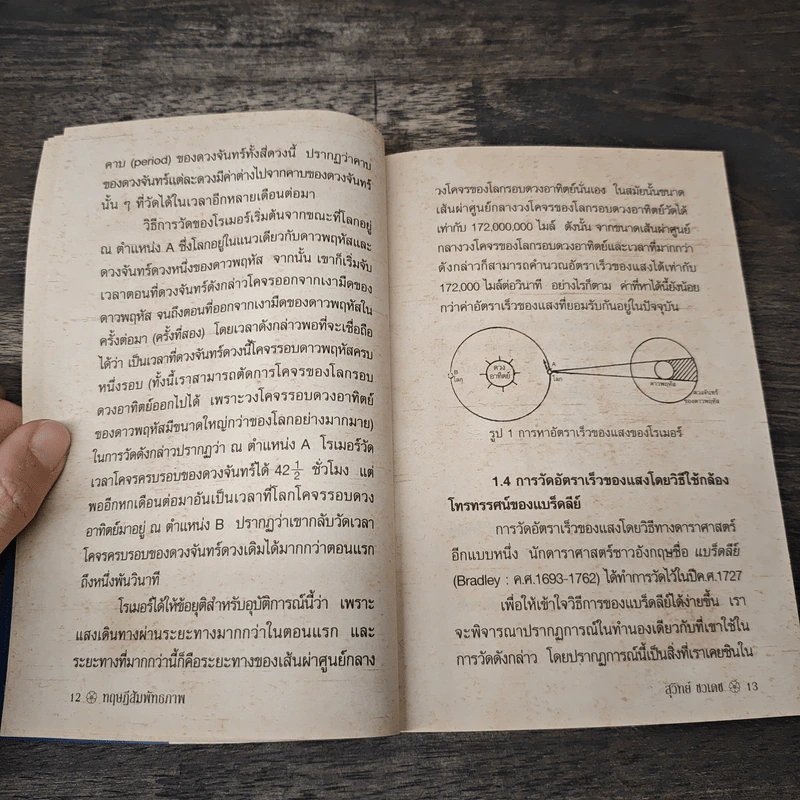 คาบ (period) ของดวงจันทร์ทั้งสี่ดวงนี้ ปรากฏว่าคาบ
ของดวงจันทร์แต่ละดวงมีค่าต่างไปจากคาบของดวงจันทร์
นั้น ๆ ที่วัดได้ในเวลาอีกหลายเดือนต่อมา
วิธีการวัดของโรเมอร์เริ่มต้นจากขณะที่โลกอยู่
ณ ตำแหน่ง A ซึ่งโลกอยู่ในแนวเดียวกับดาวพฤหัสและ
ดวงจันทร์ดวงหนึ่งของดาวพฤหัส จากนั้น เขาก็เริ่มจับ
เวลาตอนที่ดวงจันทร์ดังกล่าวโคจรออกจากเงามืดของ
ดาวพฤหัส จนถึงตอนที่ออกจากเงามืดของดาวพฤหัสใน
ครั้งต่อมา (ครั้งที่สอง) โดยเวลาดังกล่าวพอที่จะเชื่อถือ
ได้ว่า เป็นเวลาที่ดวงจันทร์ดวงนี้โคจรรอบดาวพฤหัสครบ
หนึ่งรอบ (ทั้งนี้เราสามารถตัดการโคจรของโลกรอบ
ดวงอาทิตย์ออกไปได้ เพราะวงโคจรรอบดวงอาทิตย์
ของดาวพฤหัสมีขนาดใหญ่กว่าของโลกอย่างมากมาย)
ในการวัดดังกล่าวปรากฏว่า ณ ตำแหน่ง A โรเมอร์วัด
เวลาโคจรครบรอบของดวงจันทร์ได้ 42 1/2 ชั่วโมง แต่
พออีกหกเดือนต่อมาอันเป็นเวลาที่โลกโคจรรอบดวง
อาทิตย์มาอยู่ ณ ตำแหน่ง B ปรากฏว่าเขากลับวัดเวลา
โคจรครบรอบของดวงจันทร์ดวงเดิมได้มากกว่าตอนแรก
ถึงหนึ่งพันวินาที
โรเมอร์ได้ให้ข้อยุติสำหรับอุบัติการณ์นี้ว่า เพราะ
แสงเดินทางผ่านระยะทางมากกว่าในตอนแรก และ
ระยะทางที่มากกว่านี้ก็คือระยะทางของเส้นผ่าศูนย์กลาง
12 ทฤษฎีสัมพัทธภาพ
วงโคจรของโลกรอบดวงอาทิตย์นั่นเอง ในสมัยนั้นขนาด
เส้นผ่าศูนย์กลางวงโคจรของโลกรอบดวงอาทิตย์วัดได้
เท่ากับ 172,000,000 ไมล์ ดังนั้น จากขนาดเส้นผ่าศูนย์
กลางวงโคจรของโลกรอบดวงอาทิตย์และเวลาที่มากกว่า
ดังกล่าวก็สามารถคำนวณอัตราเร็วของแสงได้เท่ากับ
172,000 ไมล์ต่อวินาที อย่างไรก็ตาม ค่าที่หาได้นี้ยังน้อย
กว่าค่าอัตราเร็วของแสงที่ยอมรับกันอยู่ในปัจจุบัน
B
โลก
ดวง
อาทิตย์
A
โลก
ดาวพฤหัส
ดวงจันทร์
ของดาวพฤหัส
รูป 1 การหาอัตราเร็วของแสงของโรเมอร์
1.4 การวัดอัตราเร็วของแสงโดยวิธีใช้กล้อง
โทรทรรศน์ของแบร็ดลีย์
การวัดอัตราเร็วของแสงโดยวิธีทางดาราศาสตร์
อีกแบบหนึ่ง นักดาราศาสตร์ชาวอังกฤษชื่อ แบร็ดลีย์
(Bradley : ค.ศ.1693-1762) ได้ทำการวัดไว้ในปีค.ศ.1727
เพื่อให้เข้าใจวิธีการของแบร็ดลีย์ได้ง่ายขึ้น เรา
จะพิจารณาปรากฏการณ์ในทำนองเดียวกับที่เขาใช้ใน
การวัดดังกล่าว โดยปรากฏการณ์นี้เป็นสิ่งที่เราเคยชินใน
สุวิทย์ ชวเดช 13